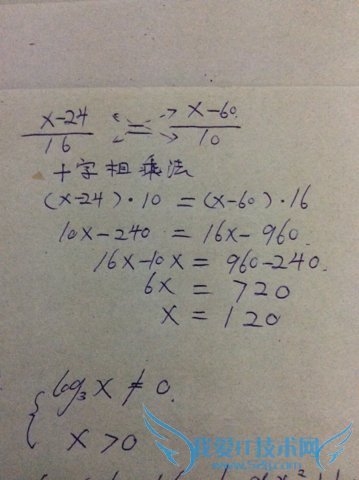 x-24/16 = x-60/10
十字相乘法
(x-24)·10 = (x-60)·16
10x-240 = 16x-960.
16x-10x = 960-240.
6x = 720
x = 120
{ log₃x ≠ 0.
x>0
我爱IT技术网